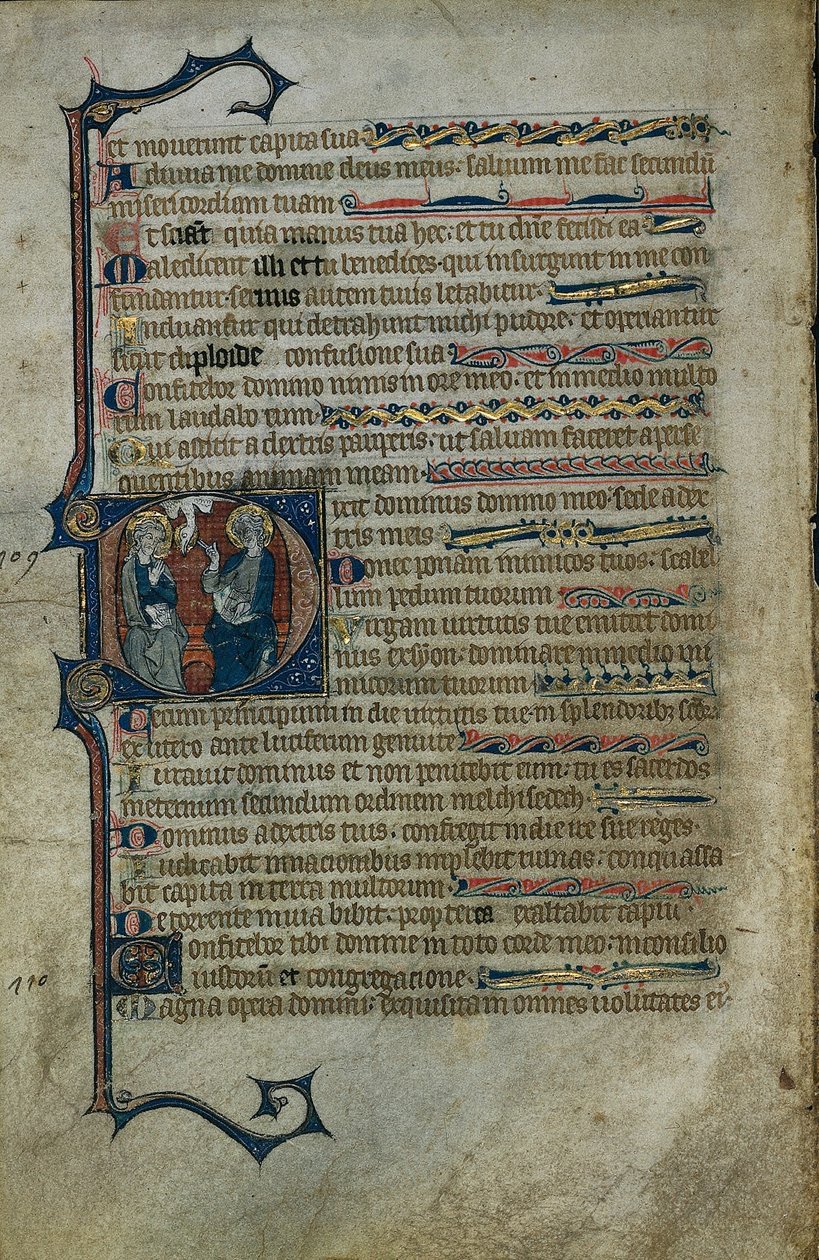 et mouerunt capita sua
Adiuua me domine deus meus. saluum me fac secundū
misericordiam tuam
Et sciāt quia manus tua hec. et tu dñe fecisti ea
Maledicent illi et tu benedices. qui insurgunt in me con
fundantur. seruus autem tuus letabitur
Induantur qui detrahunt michi pudore. et operiantur
sicut diploide confusione sua
Confitebor domino nimis in ore meo. et in medio multo
rum laudabo eum
Qui astitit a dextris pauperis. ut saluam faceret a perse
quentibus animam meam
Dixit dominus domino meo. sede a dex
tris meis
109
Donec ponam inimicos tuos. scabel
lum pedum tuorum
Virgam uirtutis tue emittet domi
nus ex syon. dominare in medio ini
micorum tuorum
Tecum principium in die uirtutis tue in splendoribȝ scōr
ex utero ante luciferum genui te
Iurauit dominus et non penitebit eum. tu es sacerdos
in eternum secundum ordinem melchisedech
Dominus a dextris tuis. confregit in die ire sue reges.
Iudicabit in nacionibus implebit ruinas. conquassa
bit capita in terra multorum
De torrente in uia bibit. propterea exaltabit capiū
Confitebor tibi domine in toto corde meo. in consilio
110
iustorū et congregacione
Magna opera domini. exquisita in omnes uolūtates eiꝰ